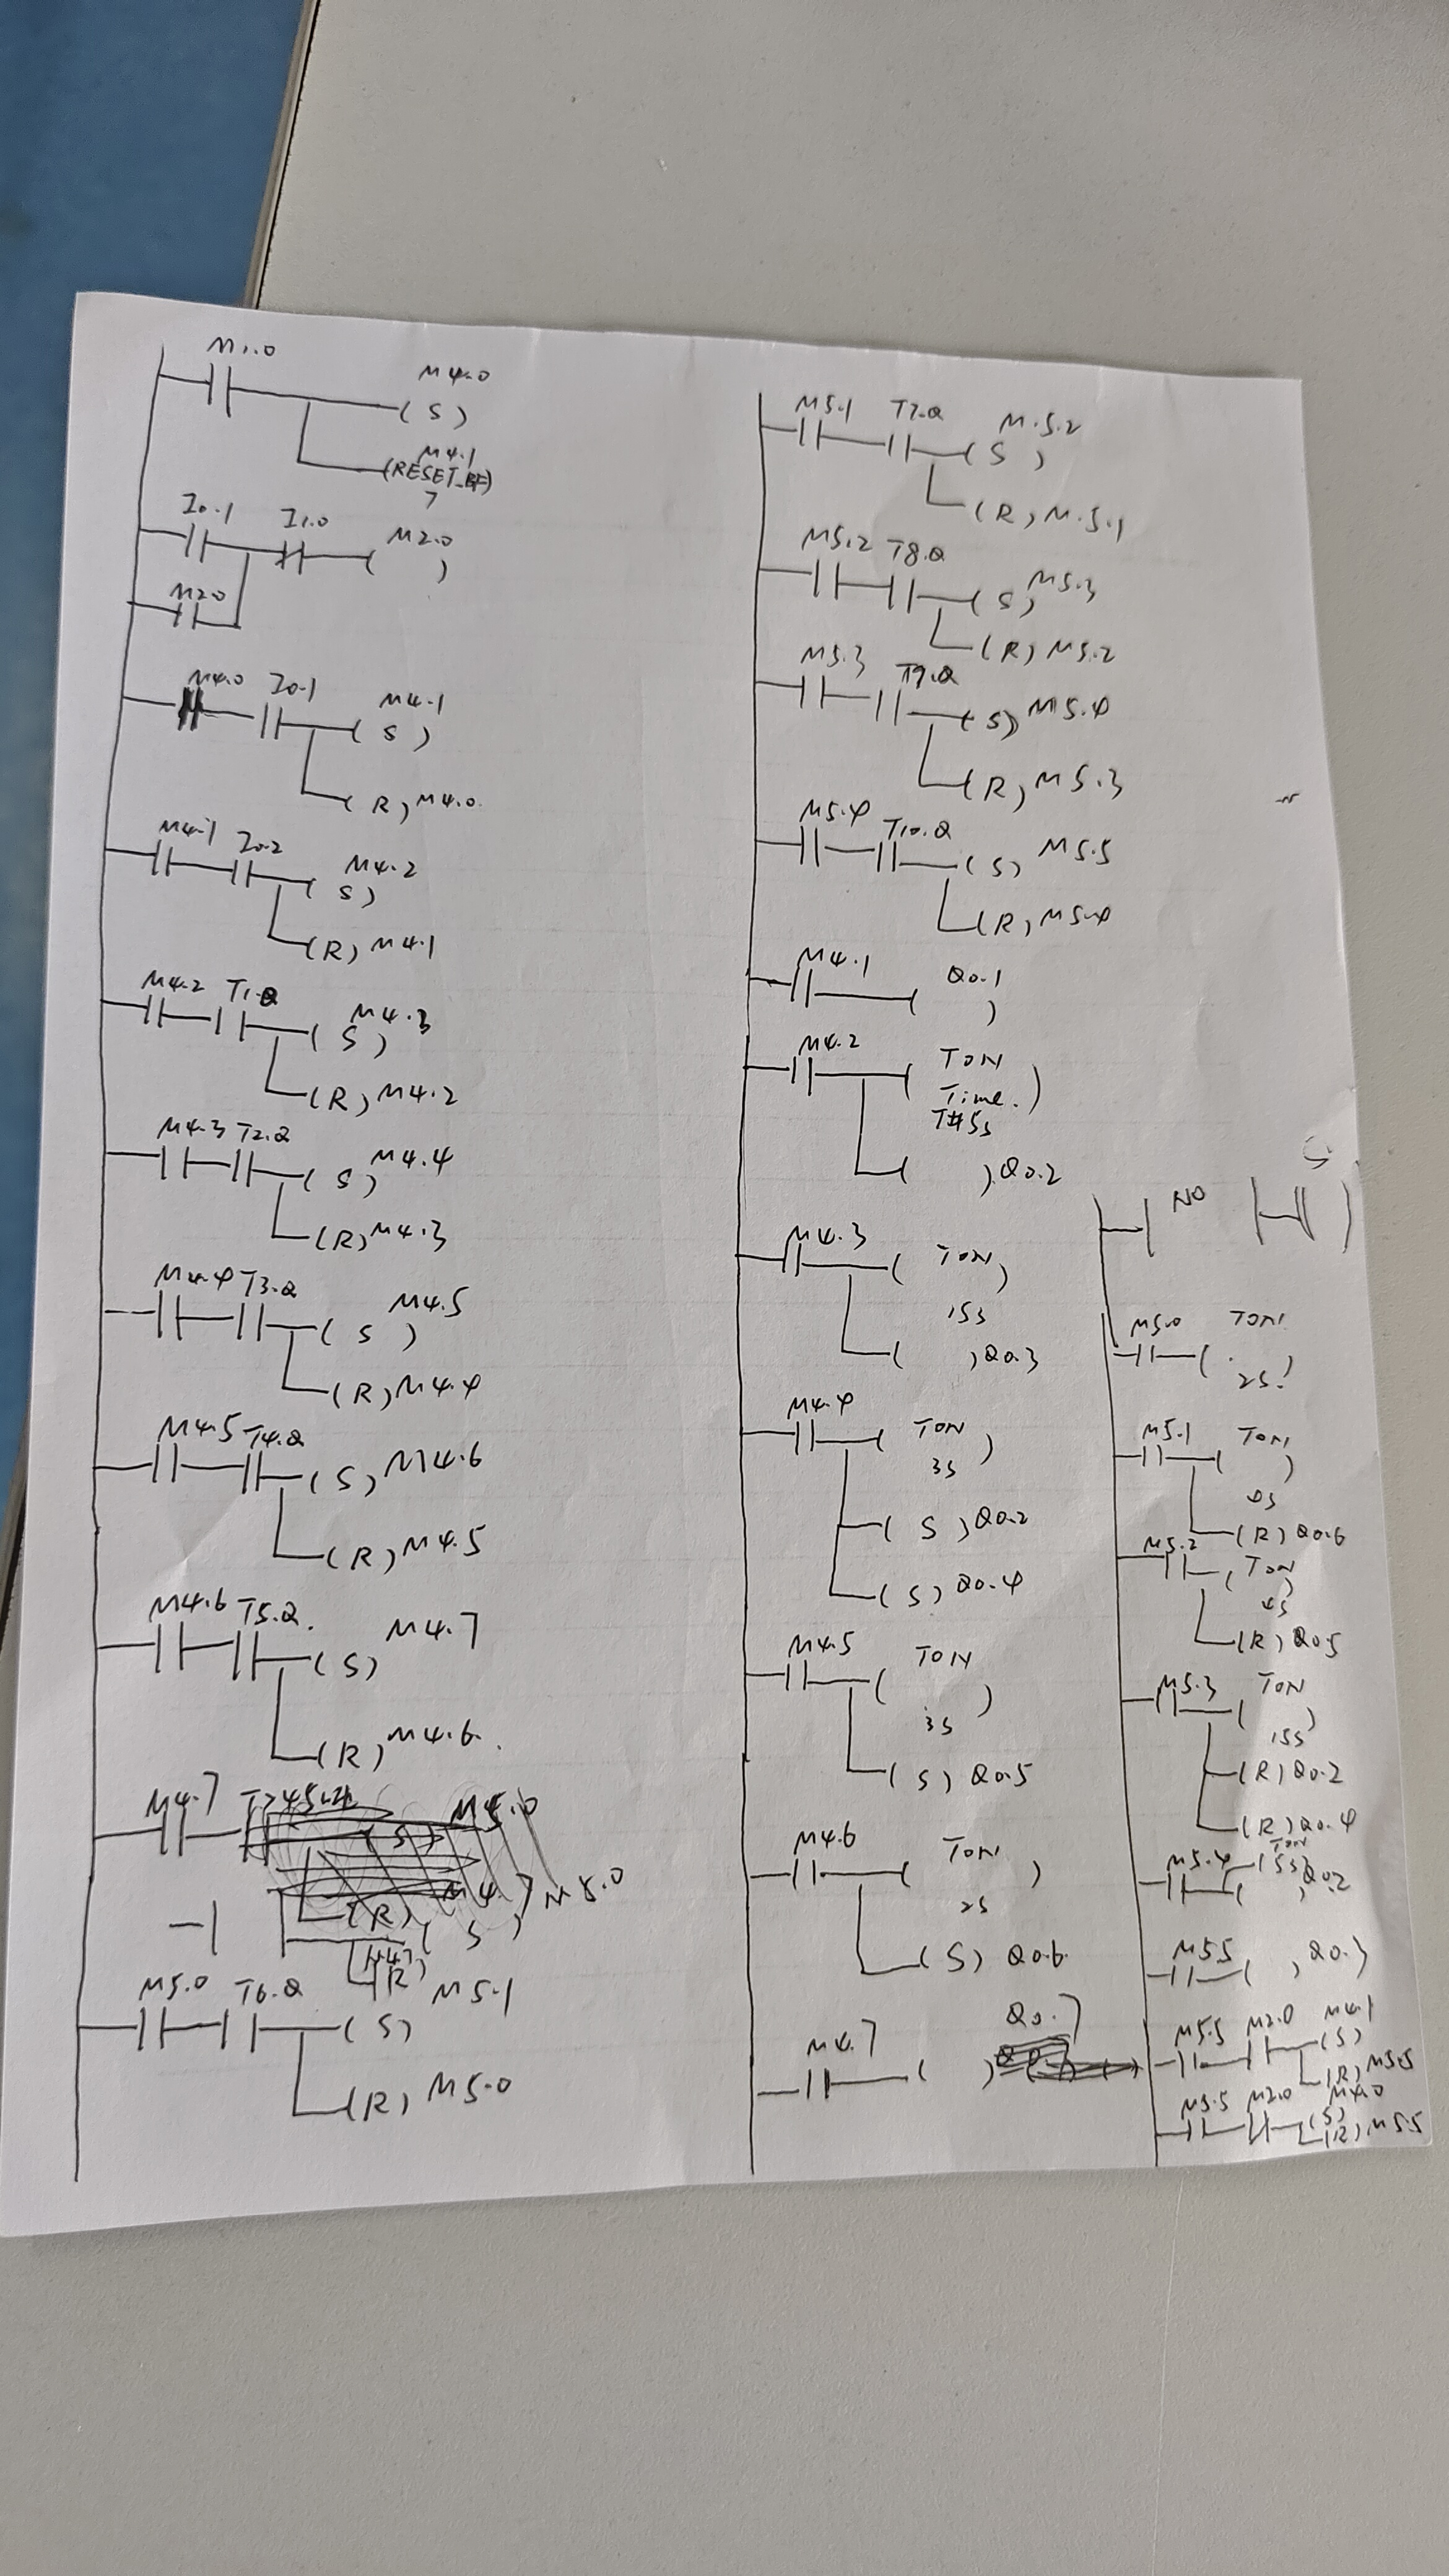 M1.0
M4.0
( S )
M4.1
(RESET_BF)
7
I0.1 I1.0 M2.0
( )
M2.0
M4.0 I0.1 M4.1
( S )
(R) M4.0
M4.1 I0.2 M4.2
( S )
(R) M4.1
M4.2 T1.Q M4.3
( S )
(R) M4.2
M4.3 T2.Q M4.4
( S )
(R) M4.3
M4.4 T3.Q M4.5
( S )
(R) M4.4
M4.5 T4.Q (S) M4.6
(R) M4.5
M4.6 T5.Q. M4.7
(S)
(R) M4.6.
M4.7
M5.0
( S )
M4.7
(R)
M5.0 T6.Q M5.1
(S)
(R) M5.0
M5.1 T7.Q M.5.2
( S )
(R) M.5.1
M5.2 T8.Q M5.3
( S )
(R) M5.2
M5.3 T9.Q
(S) M5.4
(R) M5.3
M5.4 T10.Q (S) M5.5
(R) M5.4
M4.1 Q0.1
( )
M4.2 TON
( Time. )
T#5s
( ) Q0.2
M4.3 ( TON )
15s
( ) Q0.3
M4.4 ( TON )
3s
( S ) Q0.2
(S) Q0.4
M4.5 TON
( )
3s
(S) Q0.5
M4.6 ( TON )
2s
(S) Q0.6
M4.7 Q0.7
( )
NO
M5.0 TON
( )
2s
M5.1 TON
( )
(R) Q0.6
M5.2 ( TON )
4s
(R) Q0.5
M5.3 TON
( )
15s
(R) Q0.2
(R) Q0.4
TON
M5.4 (5s)
( ) Q0.2
M5.5 ( ) Q0.3
M5.5 M2.0 M4.1
(S)
(R) M5.5
M5.5 M2.0 M4.0
(S)
(R) M5.5